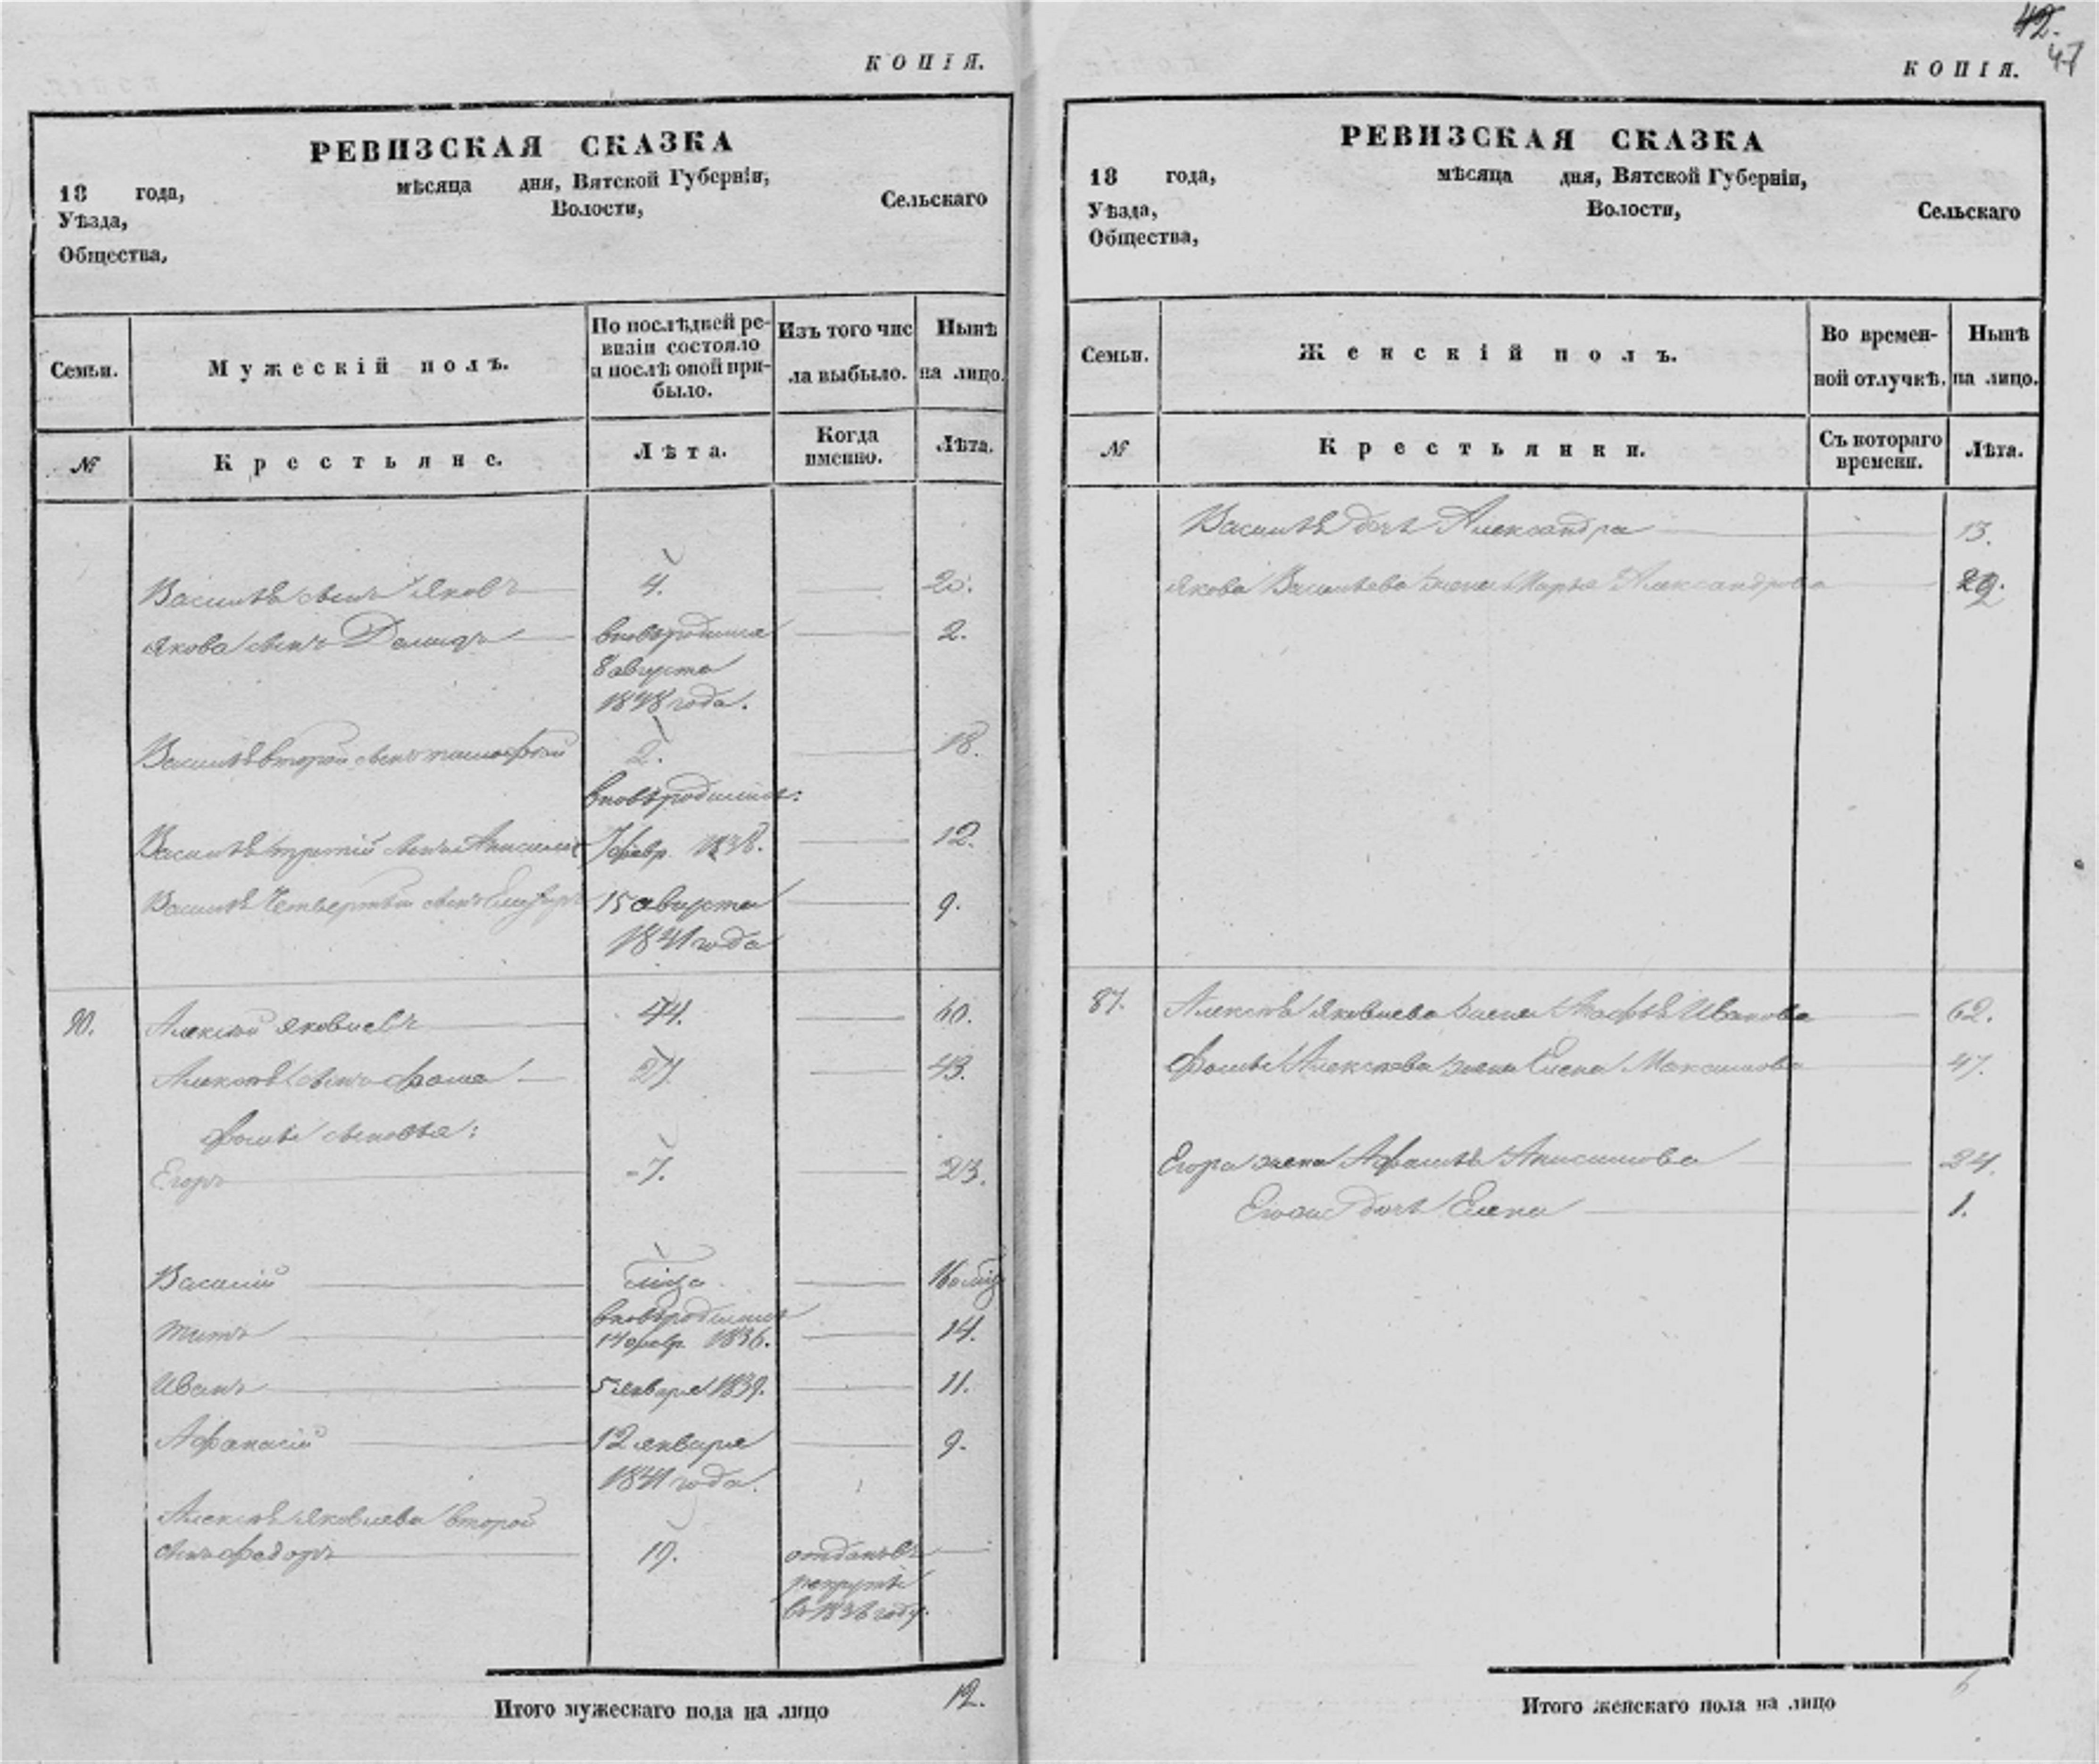 КОПІЯ.
РЕВИЗСКАЯ СКАЗКА
18 года, мѣсяца дня, Вятской Губерніи,
Уѣзда, Волости, Сельскаго
Общества,
Семьи. Мужескій полъ. По послѣдней ре-визіи состояло и послѣ оной при-было. Изъ того чис ла выбыло. Нынѣ на лицо.
№ Крестьяне. Лѣта. Когда именно. Лѣта.
Василья сынъ Яковъ 4. 20.
Якова сынъ Демидъ вновьродился 2.
8 августа
1848 года.
Василья второй сынъ Тимофей 2. 18.
вновьродились:
Василья третій сынъ Анисимъ 7 февр. 1838. 12.
Василья четвертый сынъ 15 августа 9.
1841 года
90. Алексѣй Яковлевъ 44. 60.
Алексѣя сынъ Фома 27. 43.
Фомы сыновья:
Егоръ 7. 23.
Василій 16
вновьродились
Титъ 14 февр. 1836. 14.
Иванъ 5 января 1839. 11.
Афанасій 12 января 9.
1841 года.
Алексѣя Яковлева второй
сынъ Федоръ 19. отданъ въ
рекруты
въ году.
Итого мужескаго пола на лицо 12.
42.
47
КОПІЯ.
РЕВИЗСКАЯ СКАЗКА
18 года, мѣсяца дня, Вятской Губерніи,
Уѣзда, Волости, Сельскаго
Общества,
Семьи. Женскій полъ. Во времен-ной отлучкѣ. Нынѣ на лицо.
№ Крестьянки. Съ котораго времени. Лѣта.
Василья дочь Александра 13.
Якова Васильева жена Марья Александрова 29.
87. Алексѣя Яковлева жена Ивановна 62.
Фомы Алексѣева жена Елена Максимова 47.
Егора жена Афимья Анисимова 24.
дочь Елена 1.
Итого женскаго пола на лицо 6